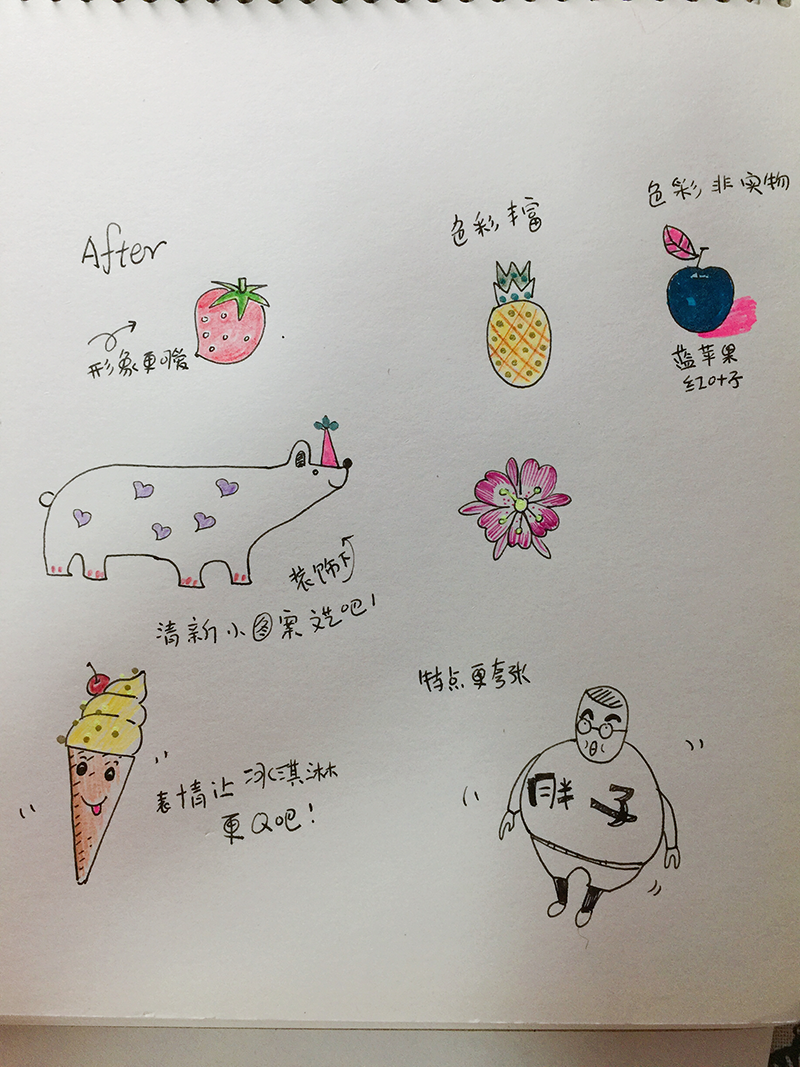 After
形象更可爱
色彩丰富
色彩非实物
蓝苹果
红叶子
装饰下
清新小图案文艺吧!
表情让冰淇淋
更Q吧!
特点更夸张
胖子